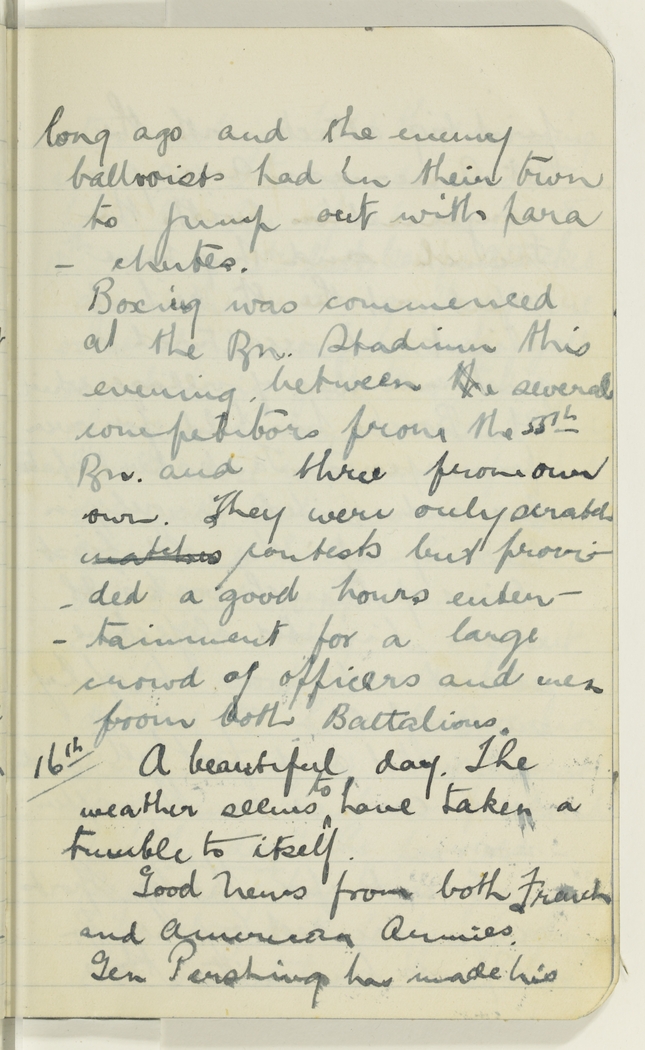 long ago and the enemy
balloonists had in their turn
to jump out with para
- chutes.
Boxing was commenced
at the Bn. Stadium this
evening, between the several
competitors from the 55th
Bn. and three from our
own. They were only scratch
matches contests but provi-
- ded a good hours enter-
- tainment for a large
crowd of officers and men
from both Battalions.
16th A beautiful day. The
weather seems to have taken a
tumble to itself.
Good news from both French
and American Armies.
Gen Pershing has made his